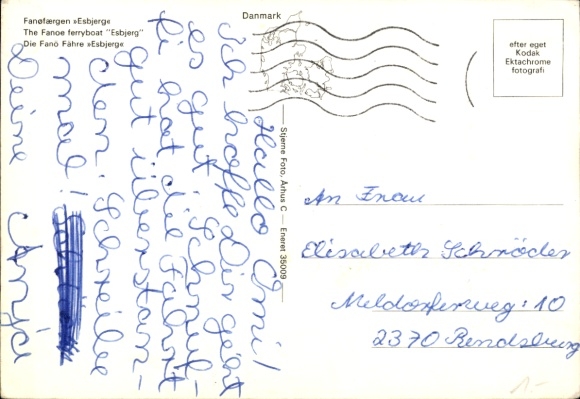 Fanøfærgen »Esbjerg«
The Fanoe ferryboat "Esbjerg"
Die Fanö Fähre »Esbjerg«
Danmark
efter eget
Kodak
Ektachrome
fotografi
Stjerne Foto, Århus C — Eneret 35009
Hallo Omi!
Ich hoffe Dir geht
es gut. Schnuf-
fi hat die Fahrt
gut überstan-
den. Schreibe
mal!
Deine Anja
An Frau
Elisabeth Schröder
Meldorferweg: 10
2370 Rendsburg
1.-